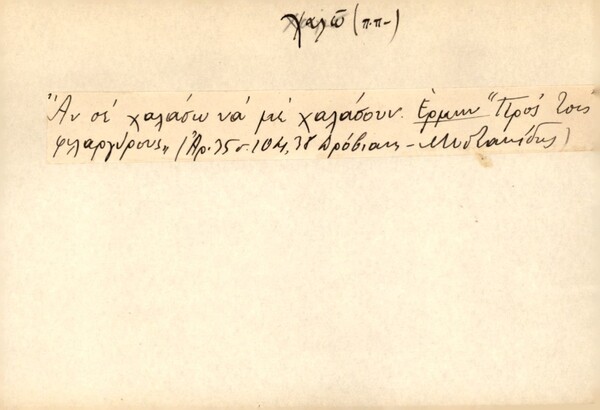 χαλῶ (π.π-)
"Ἄν σέ χαλάσω νά μέ χαλάσουν. Ἑρμην "Πρός τούς
φιλαργύρους" (Ἀρ. 35 σ. 104, 38 Δρόβιανη - Μυστακίδης)